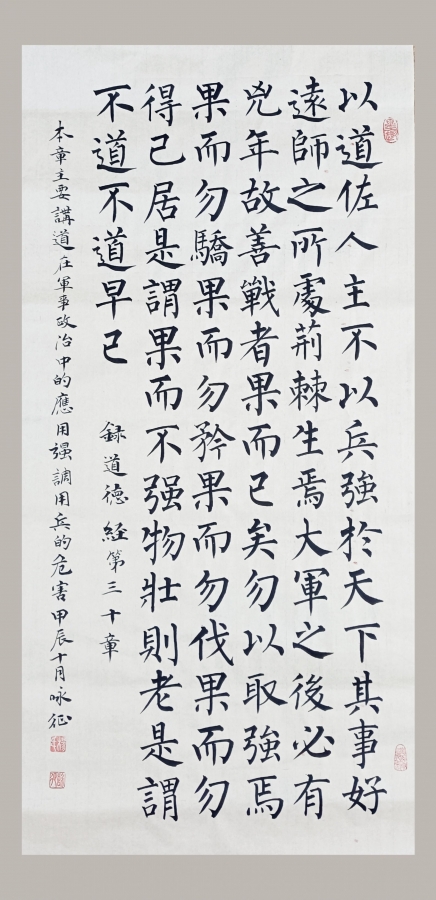 以道佐人主不以兵強於天下其事好
遠師之所處荊棘生焉大軍之後必有
兇年故善戰者果而已矣勿以取強焉
果而勿驕果而勿矜果而勿伐果而勿
得已居是謂果而不强物壯則老是謂
不道不道早已
録道德經第三十章
本章主要講道在軍事政治中的應用强調用兵的危害甲辰十月咏征